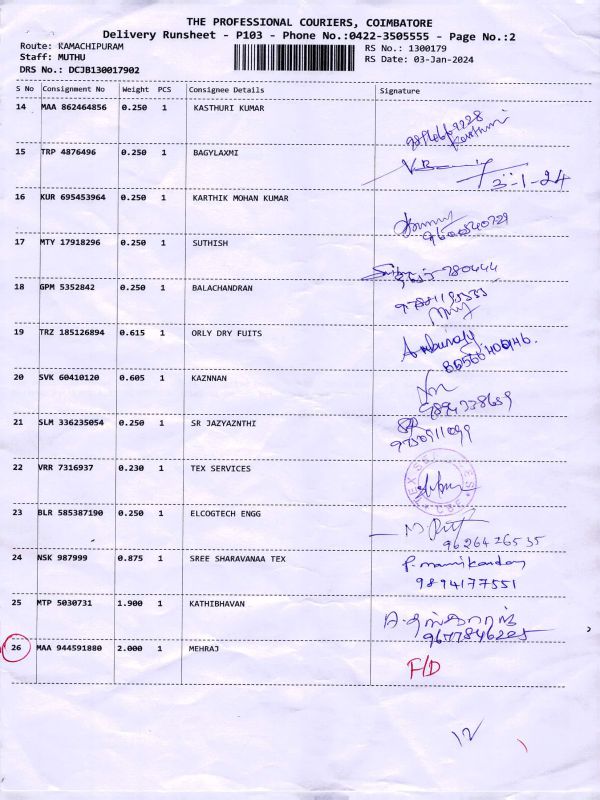 THE PROFESSIONAL COURIERS, COIMBATORE
Delivery Runsheet - P103 - Phone No.:0422-3505555 - Page No.:2
Route: KAMACHIPURAM RS No.: 1300179
Staff: MUTHU RS Date: 03-Jan-2024
DRS No.: DCJB130017902
S No Consignment No Weight PCS Consignee Details Signature
14 MAA 862464856 0.250 1 KASTHURI KUMAR
Kasthuri
15 TRP 4876496 0.250 1 BAGYLAXMI
3-1-24
16 KUR 695453964 0.250 1 KARTHIK MOHAN KUMAR
17 MTY 17918296 0.250 1 SUTHISH
18 GPM 5352842 0.250 1 BALACHANDRAN
19 TRZ 185126894 0.615 1 ORLY DRY FUITS
20 SVK 60410120 0.605 1 KAZNNAN
9894338659
21 SLM 336235054 0.250 1 SR JAZYAZNTHI
9750911099
22 VRR 7316937 0.230 1 TEX SERVICES
23 BLR 585387190 0.250 1 ELCOGTECH ENGG
9626426535
24 NSK 987999 0.875 1 SREE SHARAVANAA TEX
P. manikandan
9894177551
25 MTP 5030731 1.900 1 KATHIBHAVAN
9677846225
26 MAA 944591880 2.000 1 MEHRAJ F/D
12